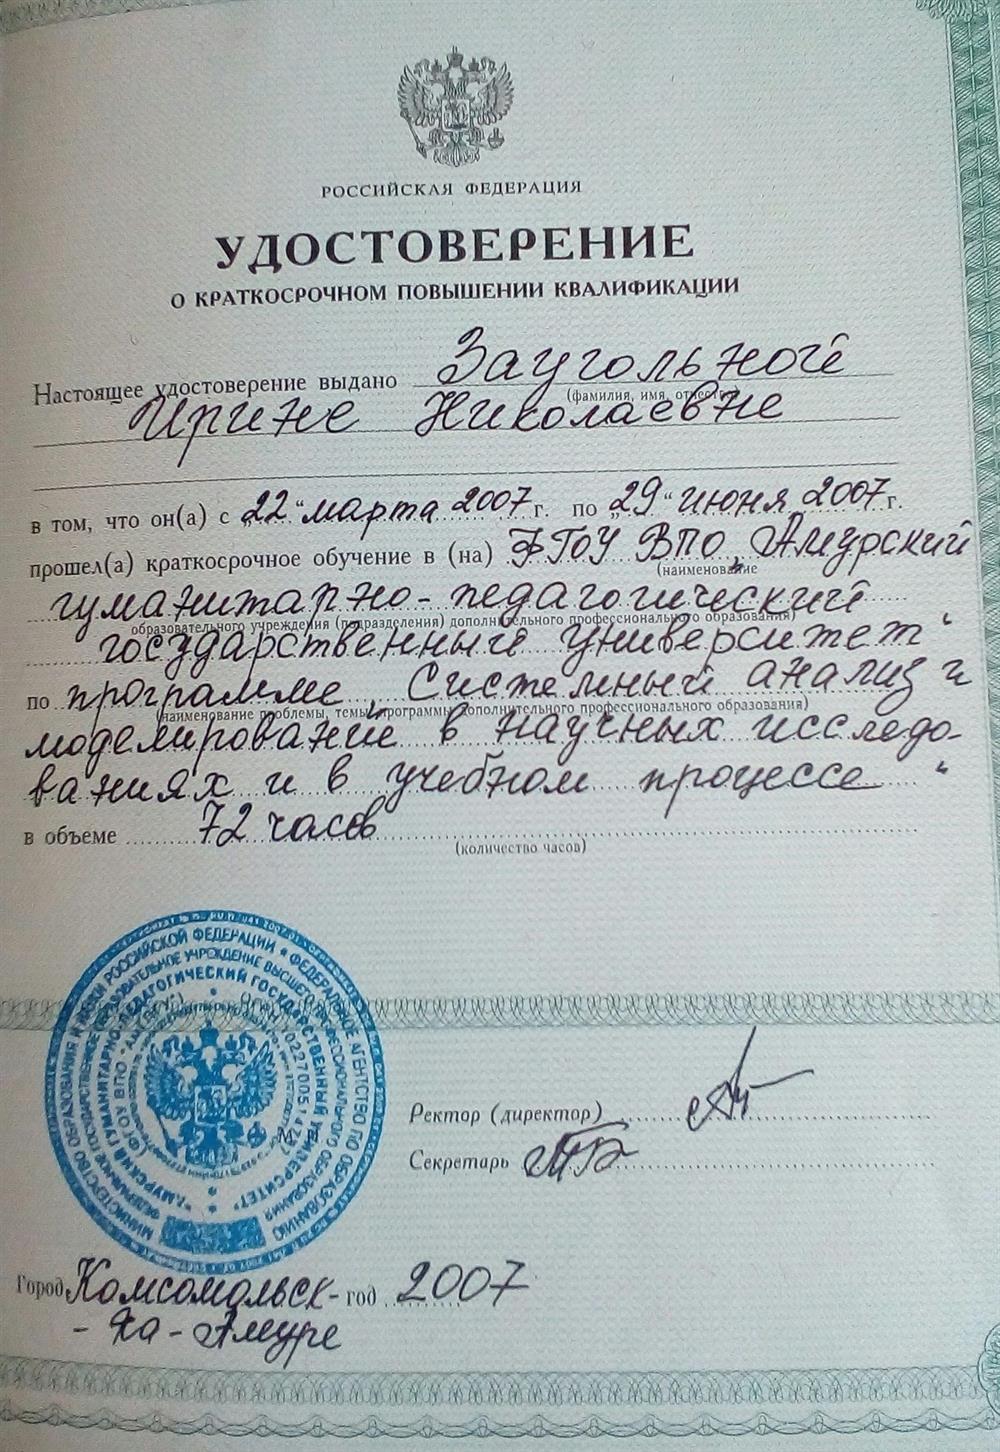 РОССИЙСКАЯ ФЕДЕРАЦИЯ
УДОСТОВЕРЕНИЕ
О КРАТКОСРОЧНОМ ПОВЫШЕНИИ КВАЛИФИКАЦИИ
Настоящее удостоверение выдано Заугольной
(фамилия, имя, отчество)
Ирине Николаевне
в том, что он(а) с „22“ марта 2007 г. по „29“ июня 2007 г.
прошел(а) краткосрочное обучение в (на) ФГОУ ВПО „Амурский
(наименование
гуманитарно-педагогический
образовательного учреждения (подразделения) дополнительного профессионального образования)
государственный университет“
по программе „Системный анализ и
(наименование проблемы, темы, программы дополнительного профессионального образования)
моделирований в научных исследо-
ваниях и в учебном процессе“
в объеме 72 часов
(количество часов)
МИНИСТЕРСТВО ОБРАЗОВАНИЯ И НАУКИ РОССИЙСКОЙ ФЕДЕРАЦИИ * ФЕДЕРАЛЬНОЕ АГЕНТСТВО ПО ОБРАЗОВАНИЮ
ФЕДЕРАЛЬНОЕ ГОСУДАРСТВЕННОЕ ОБРАЗОВАТЕЛЬНОЕ УЧРЕЖДЕНИЕ ВЫСШЕГО ПРОФЕССИОНАЛЬНОГО ОБРАЗОВАНИЯ
"АМУРСКИЙ ГУМАНИТАРНО-ПЕДАГОГИЧЕСКИЙ ГОСУДАРСТВЕННЫЙ УНИВЕРСИТЕТ"
(ФГОУ ВПО
Ректор (директор)
Секретарь
Город Комсомольск- год 2007
-на-Амуре